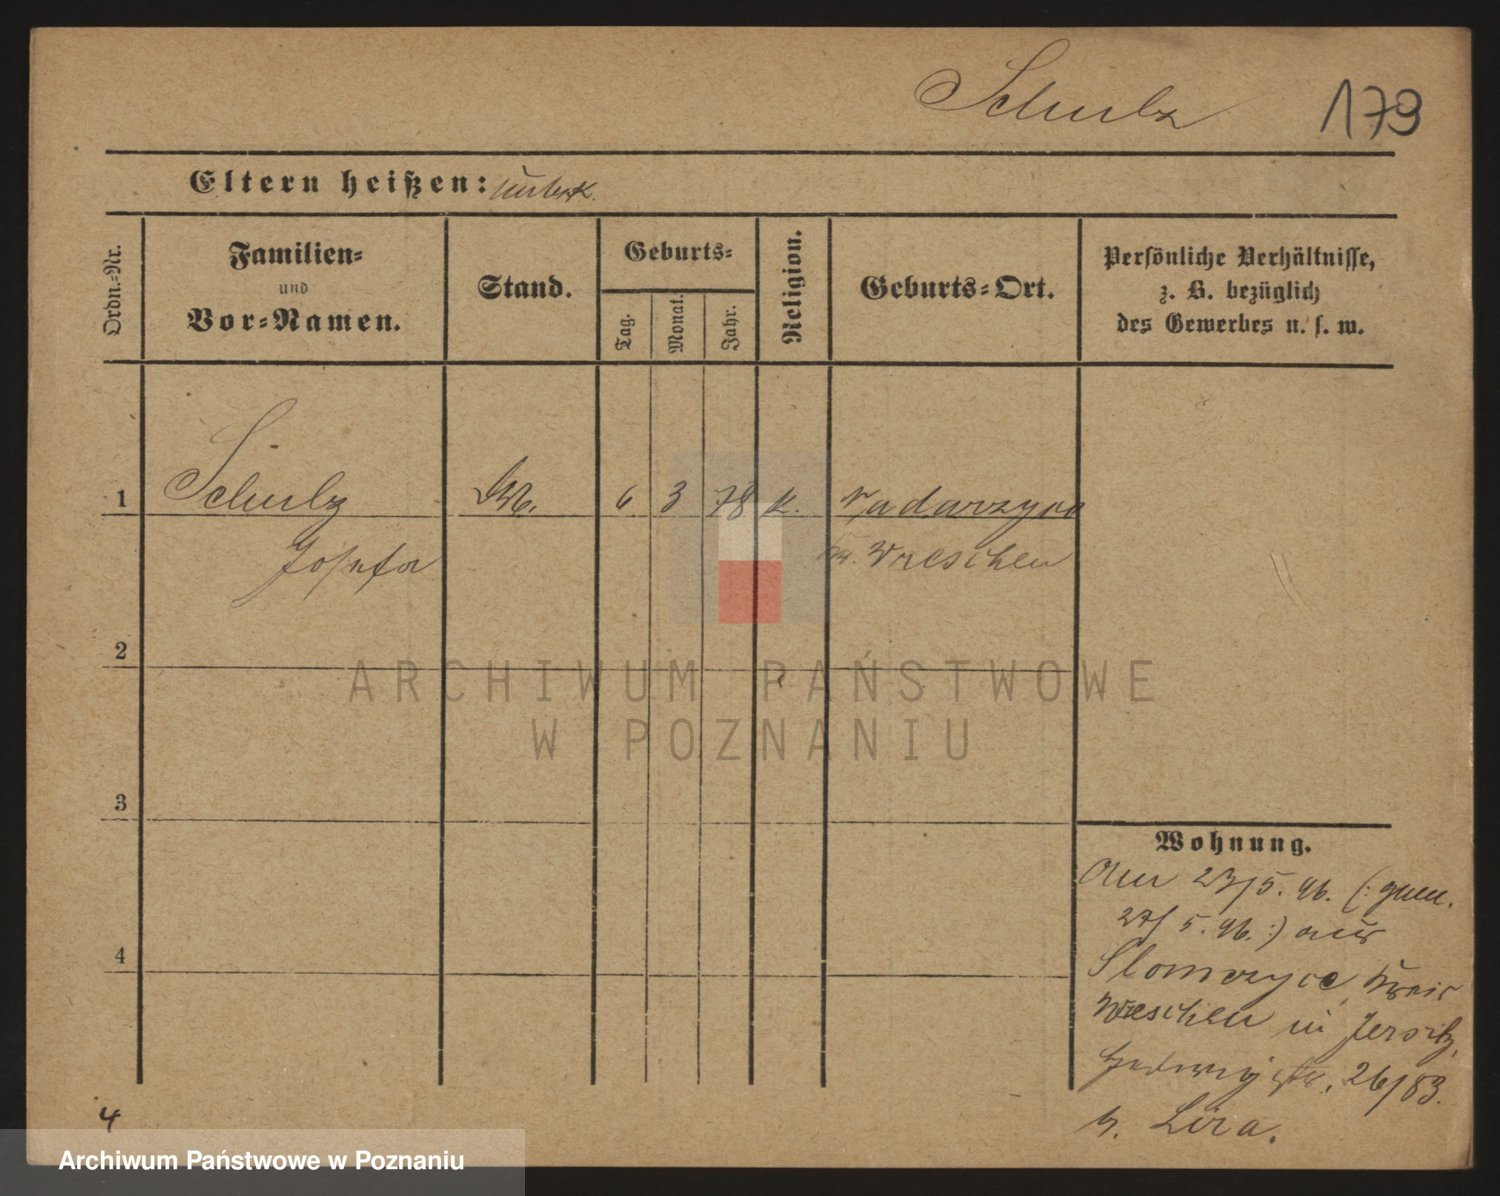 Schulz 179
Eltern heißen: unbek.
Ordn.-Nr.
Familien-
und
Vor-Namen.
Stand.
Geburts-
Tag.
Monat.
Jahr.
Religion.
Geburts-Ort.
Persönliche Verhältnisse,
z. B. bezüglich
des Gewerbes u. s. w.
1 Schulz 6 3 78 k. Nadarzyce
Josefa Kr. Wreschen
2
ARCHIWUM PAŃSTWOWE
W POZNANIU
3
Wohnung.
Am 23/5. 96. (: gem.
27/5. 96. :) aus
Slomczyce, Kreis
Wreschen in Jersitz,
Hedwigstr. 26/83.
b. Lira.
4
4
Archiwum Państwowe w Poznaniu